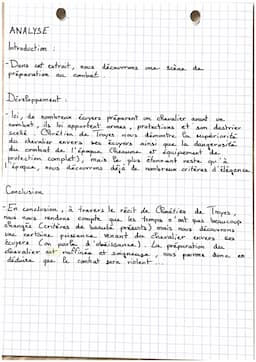 ANALYSE
Introduction :
- Dans cet extrait, nous découvrons une scène de
préparation au combat.
Développement :
- Ici, de nombreux écuyers préparent un chevalier avant un
combat, ils lui apportent armes, protections et son destrier
scellé. Chrétien de Troyes nous démontre la supériorité
du chevalier envers ses écuyers ainsi que la dangerosité
du combat de l'époque (heaume et équipement de
protection complet), mais le plus étonnant reste qu'à
l'époque, nous découvrons déjà de nombreux critères d'élégance
Conclusion
- En conclusion, à travers le récit de Chrétien de Troyes,
nous nous rendons compte que les temps n'ont pas beaucoup
changés (critères de beauté présents) mais nous découvrons
une certaine puissance venant du chevalier envers ses
écuyers (on parle d'obéissance). La préparation du
chevalier est raffinée et soigneuse, nous pouvons donc en
déduire que le combat sera violent...